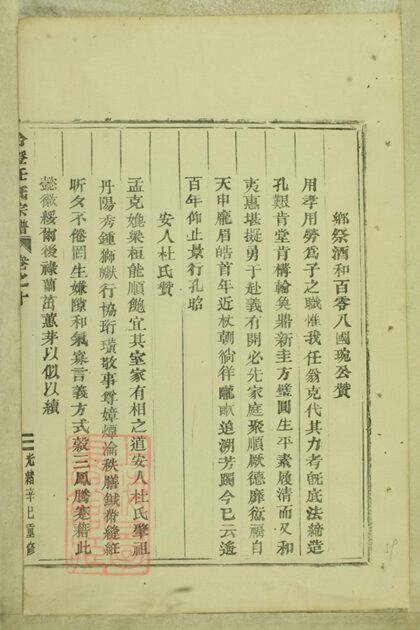 鄉祭酒和百零八國琬公贊
用孝用勞爲子之職惟我任翁克代其力考既底法締造
孔艱肯堂肯構輪奐鼎新圭方璧圓生平素履清而又和
夷惠堪擬勇于赴義有開必先家庭聚順厥德靡愆福自
天申龐眉皓首年近杖朝徜徉隴畝追溯芳躅今已云遙
百年仰止景行孔昭
安人杜氏贊
孟克媲梁桓能順鮑宜其室家有相之道安人杜氏肇祖
丹陽秀鍾獅嶽行協珩璜敬事尊嫜潭瀹秩膳鍼帶縫紝
昕夕不倦罔生嫌隙和氣寡言義方式穀三鳳騰騫藉此
懿徽綏爾後祿蘭茁蕙芽以似以續
任氏宗譜 卷之十
光緒辛巳重修